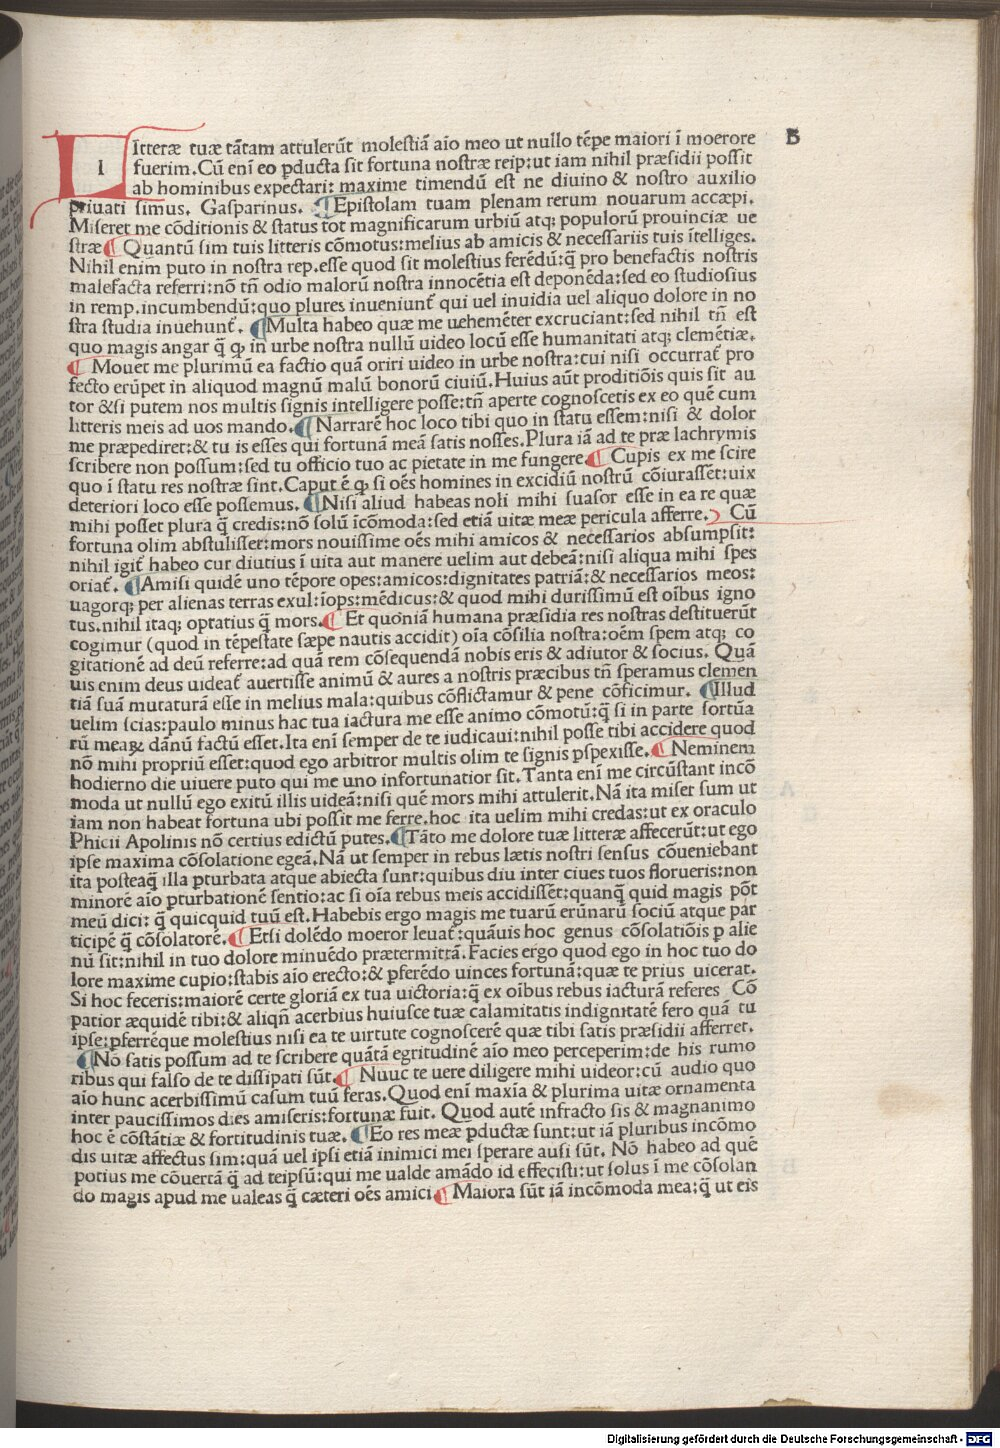 B
LĪtteræ tuæ tātam attulerūt molestiā aīo meo ut nullo tēpe maiori ī moerore
fuerim. Cū enī eo ꝓducta sit fortuna nostræ reip:ut iam nihil præsidii possit
ab hominibus expectari: maxime timendū est ne diuino & nostro auxilio
priuati simus. Gasparinus. ¶Epistolam tuam plenam rerum nouarum accæpi.
Miseret me cōditionis & status tot magnificarum urbiū atqꝫ populorū prouinciæ ue
stræ ¶ Quantū sim tuis litteris cōmotus:melius ab amicis & necessariis tuis ītelliges.
Nihil enim puto in nostra rep.esse quod sit molestius ferēdū:q̄ pro benefactis nostris
malefacta referri:nō tn̄ odio malorū nostra innocētia est deponēda:sed eo studiosius
in remp.incumbendū:quo plures inueniunt᷑ qui uel inuidia uel aliquo dolore in no
stra studia inuehunt᷑. ¶Multa habeo quæ me uehemēter excruciant:sed nihil tn̄ est
quo magis angar q̄ ꝙ in urbe nostra nullū uideo locū esse humanitati atqꝫ clemētiæ.
¶ Mouet me plurimū ea factio quā oriri uideo in urbe nostra:cui nisi occurrat᷑ pro
fecto erūpet in aliquod magnū malū bonorū ciuiū.Huius aūt proditiōis quis sit au
tor &si putem nos multis signis intelligere posse:tn̄ aperte cognoscetis ex eo quē cum
litteris meis ad uos mando.¶ Narrarē hoc loco tibi quo in statu essem:nisi & dolor
me præpediret:& tu is esses qui fortunā meā satis nosses.Plura iā ad te præ lachrymis
scribere non possum:sed tu officio tuo ac pietate in me fungere.¶ Cupis ex me scire
quo ī statu res nostræ sint.Caput ē ꝙ si oēs homines in excidiū nostrū cōiurassēt:uix
deteriori loco esse possemus. ¶Nisi aliud habeas noli mihi suasor esse in ea re quæ
mihi posset plura q̄ credis:nō solū īcōmoda:sed etiā uitæ meæ pericula afferre.) Cū
fortuna olim abstulisset:mors nouissime oēs mihi amicos & necessarios absumpsit:
nihil igit᷑ habeo cur diutius ī uita aut manere uelim aut debeā:nisi aliqua mihi spes
oriat᷑. ¶Amisi quidē uno tēpore opes:amicos:dignitates patriā:& necessarios meos:
uagorqꝫ per alienas terras exul:īops:mēdicus:& quod mihi durissimū est oībus igno
tus.nihil itaqꝫ optatius q̄ mors.¶ Et quoniā humana præsidia res nostras destituerūt
cogimur (quod in tēpestate sæpe nautis accidit) oīa cōsilia nostra:oēm spem atqꝫ co
gitationē ad deū referre:ad quā rem cōsequendā nobis eris & adiutor & socius. Quā
uis enim deus uideat᷑ auertisse animū & aures a nostris præcibus tn̄ speramus clemen
tiā suā mutaturā esse in melius mala:quibus cōflictamur & pene cōficimur. ¶Illud
uelim scias:paulo minus hac tua iactura me esse animo cōmotū:q̄ si in parte fortūa
rū meaꝝ dānū factū esset.Ita enī semper de te iudicaui:nihil posse tibi accidere quod
nō mihi propriū esset:quod ego arbitror multis olim te signis ꝑspexisse.¶ Neminem
hodierno die uiuere puto qui me uno infortunatior sit.Tanta enī me circūstant incō
moda ut nullū ego exitū illis uideā:nisi quē mors mihi attulerit.Nā ita miser sum ut
iam non habeat fortuna ubi possit me ferre.hoc ita uelim mihi credas:ut ex oraculo
Phicii Apolinis nō certius edictū putes.¶Tāto me dolore tuæ litteræ affecerūt:ut ego
ipse maxima cōsolatione egeā.Nā ut semper in rebus lætis nostri sensus cōueniebant
ita posteaq̄ illa ꝑturbata atque abiecta sunt:quibus diu inter ciues tuos florueris:non
minorē aīo ꝑturbationē sentio:ac si oīa rebus meis accidissēt:quanq̄ quid magis pōt
meū dici: q̄ quicquid tuū est.Habebis ergo magis me tuarū erūnarū sociū atque par
ticipē q̄ cōsolatorē.¶ Etsi dolēdo moeror leuat᷑:quāuis hoc genus cōsolatiōis ꝑ alie
nū sit:nihil in tuo dolore minuēdo prætermittā.Facies ergo quod ego in hoc tuo do
lore maxime cupio:stabis aīo erecto:& ꝑferēdo uinces fortunā:quæ te prius uicerat.
Si hoc feceris:maiorē certe gloriā ex tua uictoria:q̄ ex oībus rebus iacturā referes Cō
patior æquidē tibi:& aliqn̄ acerbius huiusce tuæ calamitatis indignitatē fero quā tu
ipse:ꝑferrēque molestius nisi ea te uirtute cognoscerē quæ tibi satis præsidii afferret.
¶Nō satis possum ad te scribere quātā egritudinē aīo meo perceperim:de his rumo
ribus qui falso de te dissipati sūt.¶ Nuuc te uere diligere mihi uideor:cū audio quo
aīo hunc acerbissimū casum tuū feras.Quod enī maxīa & plurima uitæ ornamenta
inter paucissimos dies amiseris:fortunæ fuit. Quod autē infracto sis & magnanimo
hoc ē cōstātiæ & fortitudinis tuæ.¶Eo res meæ ꝓductæ sunt:ut iā pluribus incōmo
dis uitæ affectus sim:quā uel ipsi etiā inimici mei sperare ausi sūt. Nō habeo ad quē
potius me cōuertā q̄ ad teipsū:qui me ualde amādo id effecisti:ut solus ī me cōsolan
do magis apud me ualeas q̄ cæteri oēs amici ¶ Maiora sūt iā incōmoda mea:q̄ ut eis
Digitalisierung gefördert durch die Deutsche Forschungsgemeinschaft - DFG